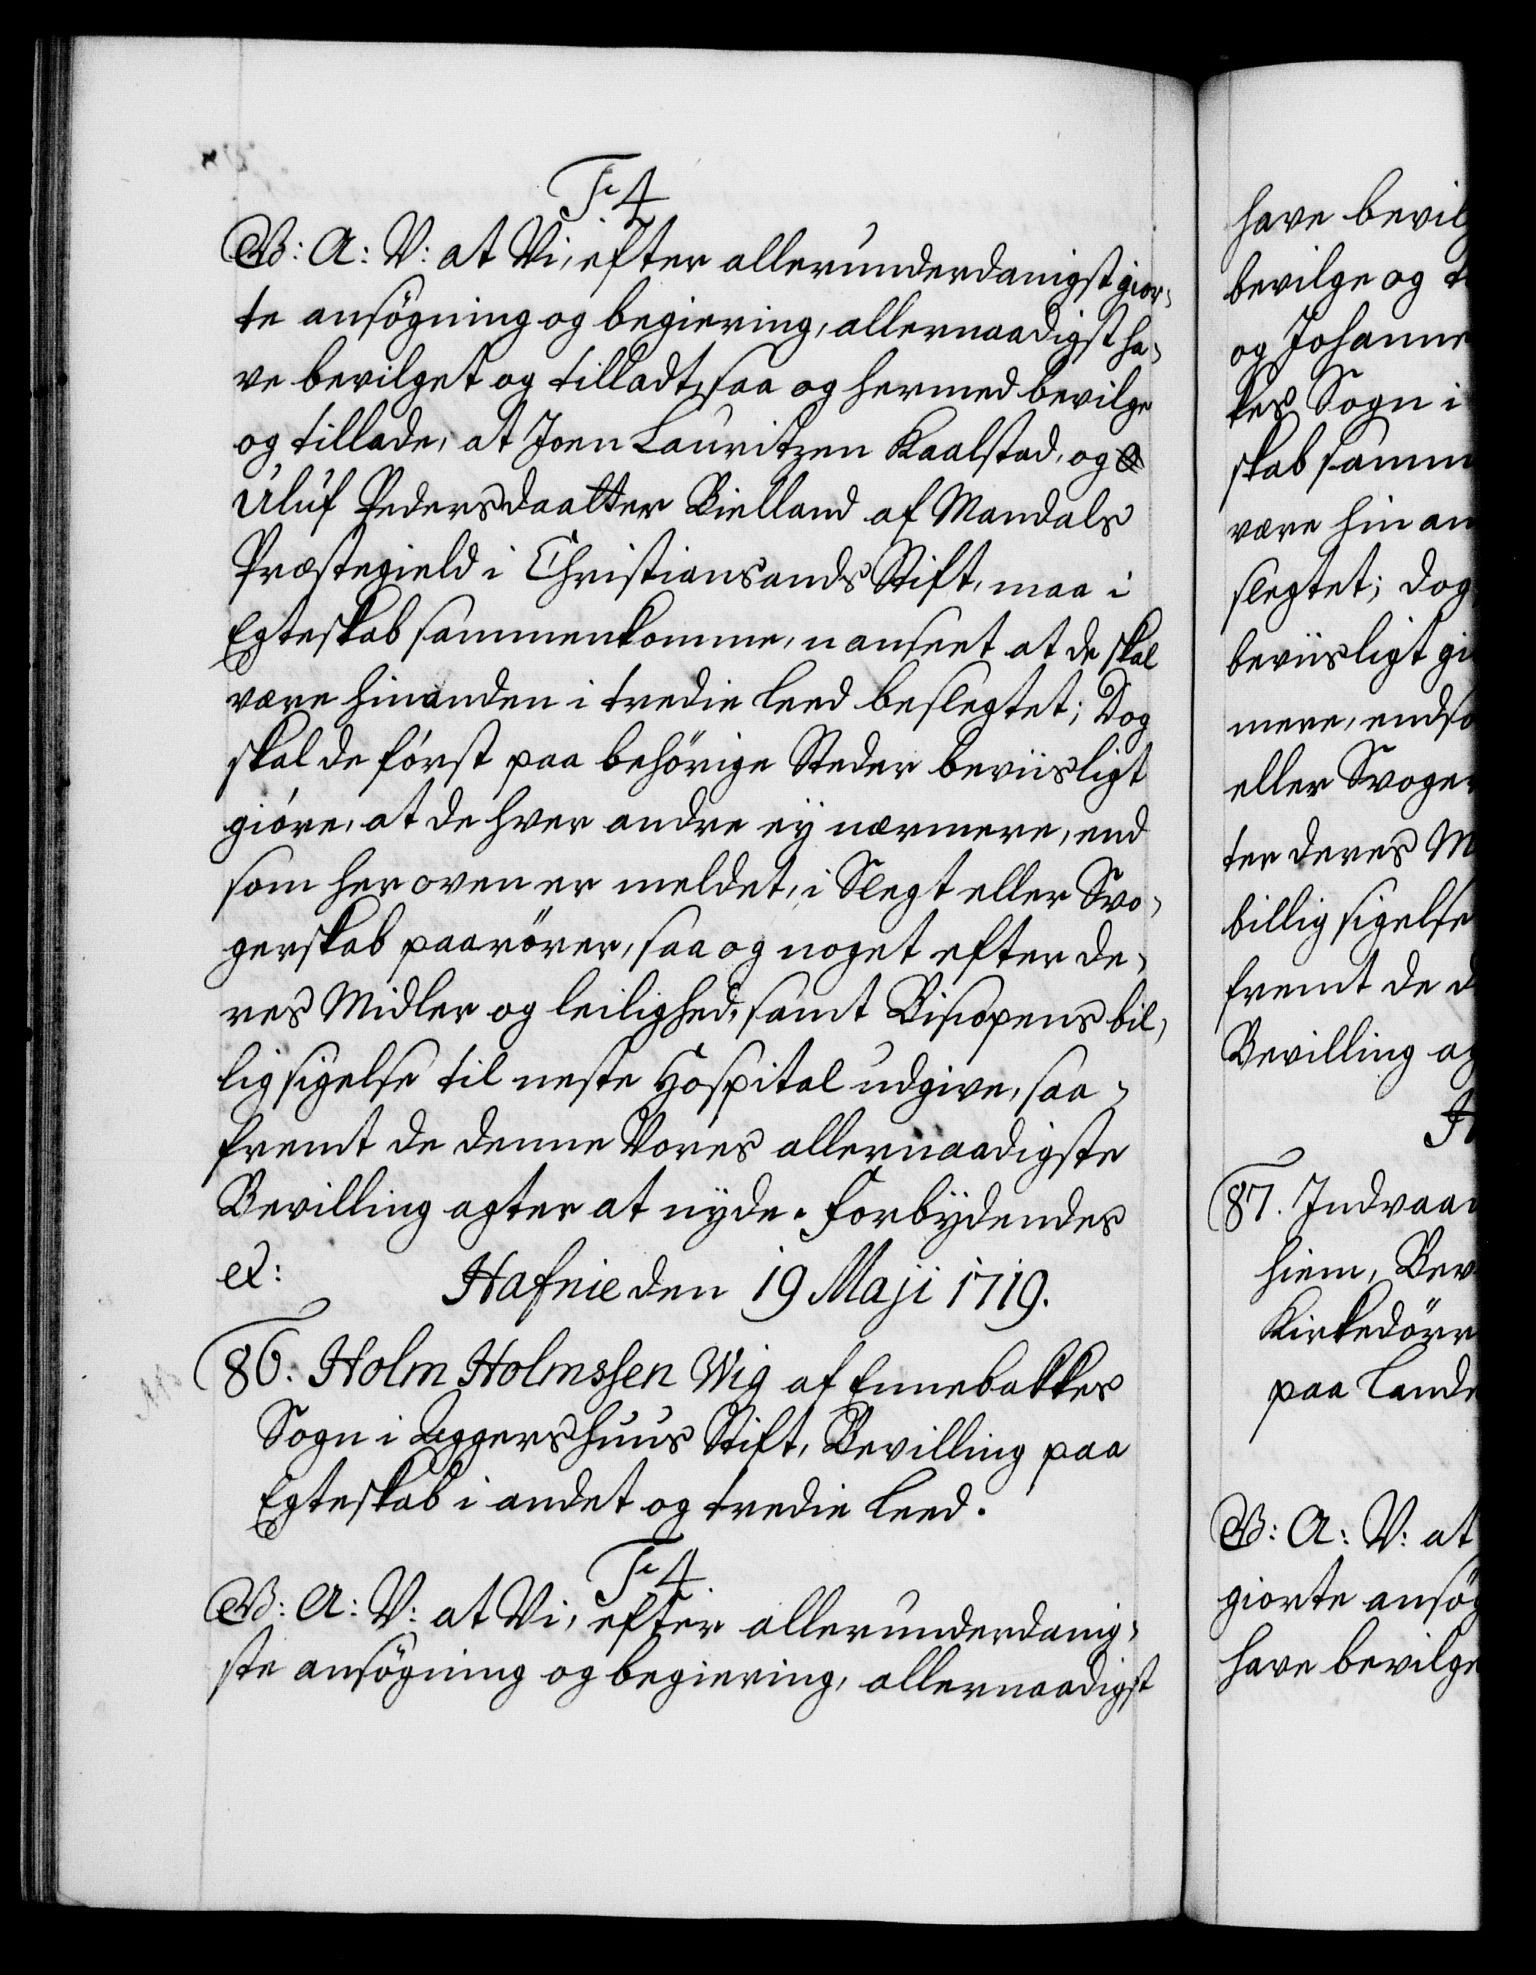 F4
G: A: V: at Vi, efter allerunderdanigst gior-
te ansögning og begiering, allernaadigst ha-
ve bevilget og tilladt, saa og hermed bevilge
og tillade, at Joen Lauritzen Kaalstad, og
Uluf Pedersdaatter Bielland af Mandals
Præstegield i Christiansands Stift, maa i
Egteskab sammenkomme, uanseet at de skal
være hinanden i tredie leed beslegtet; Dog
skal de först paa behörige Steder beviisligt
giöre, at de hver andre ey nærmere, end
som her oven er meldet, i Slegt eller Svo-
gerskab paarörer, saa og noget efter de-
res Midler og leilighed, samt Biscopens bil-
lig sigelse til neste Hospital udgive, saa-
fremt de denne Vores allernaadigste
Bevilling agter at nyde. Forbydendes
et:    Hafnie den 19 Maji 1719.
86. Holm Holmssen Wig af Ennebakkes
Sogn i Aggershuus Stift, Bevilling paa
Egteskab i andet og tredie leed.
F4
G: A: V: at Vi, efter allerunderdanig-
ste ansögning og begiering, allernaadigst
have bevilg
bevilge og t
og Johanne
kes Sogn i
skab samm
være hinan
slegtet; dog
beviisligt gi
mere, endso
eller Svoger
ter deres M
billig sigelse
fremt de d
Bevilling ag
H
87. Indvaan
hiem, Bev
Kirkedörr
paa Lande
G: A: V: at
giorte ansög
have bevilge